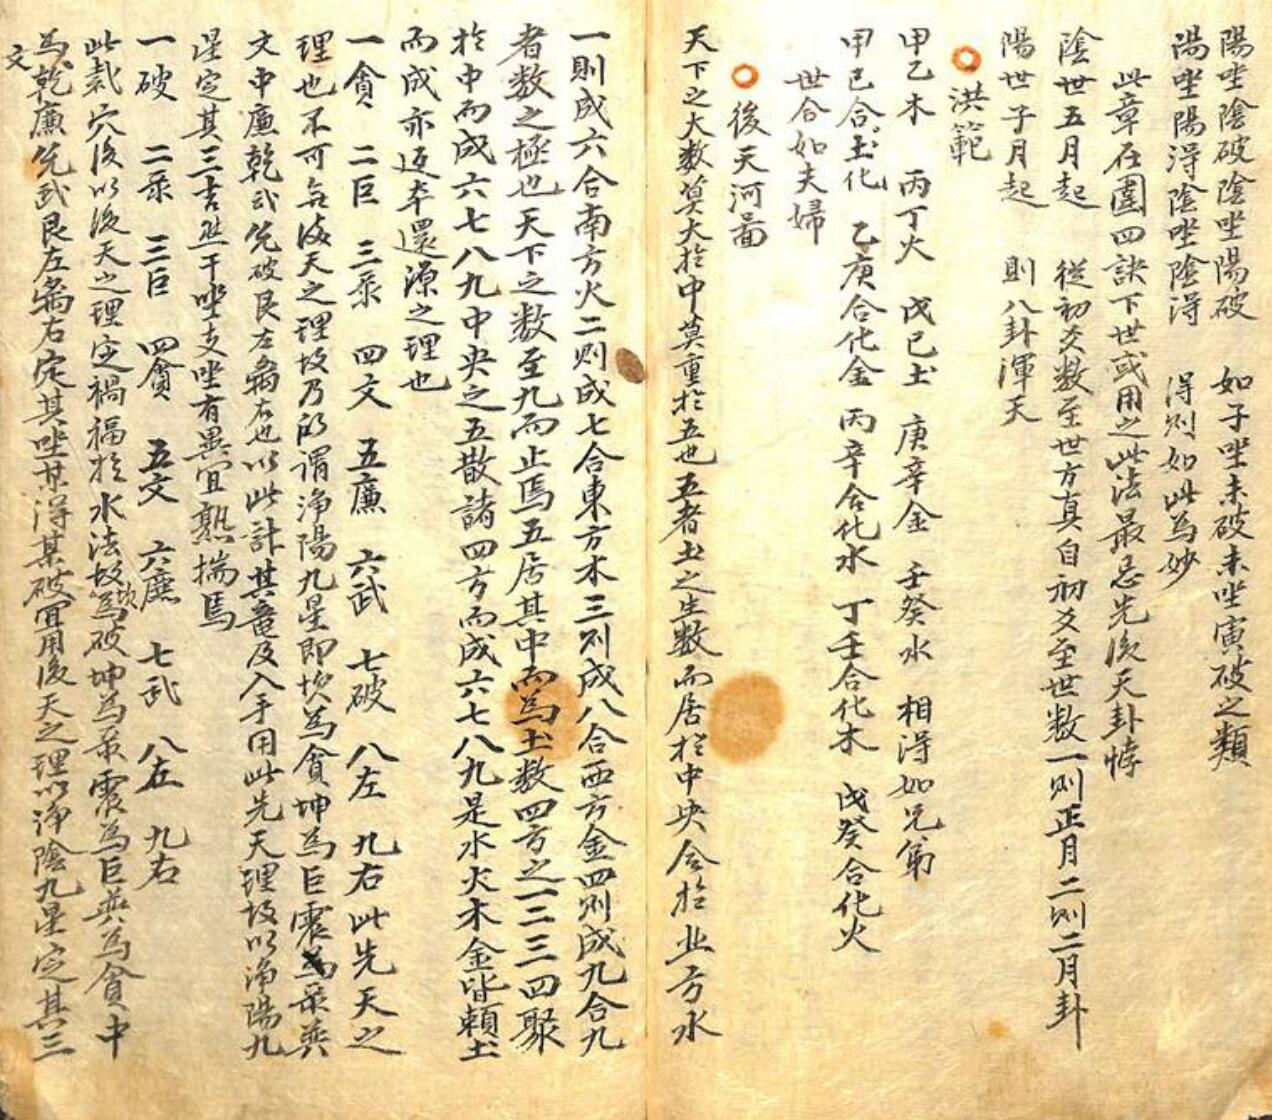 陽坐陰破陰坐陽破 如子坐未破未坐寅破之類
陽坐陽淂陰坐陰得 得則如此為妙
此章在圖四訣下世或用之此法最忌先後天卦悖
陰世五月起 從初爻数至世方真自初爻至世数一則正月二則二月卦
陽世子月起 則八卦渾天
洪範
甲乙木 丙丁火 戊己土 庚辛金 壬癸水 相得如兄弟
甲己合土化 乙庚合化金 丙辛合化水 丁壬合化木 戊癸合化火
世合如夫婦
後天河啚
天下之大数莫大扵中莫重扵五也五者土之生数而居扵中央合扵北方水
一則成六合南方火二则成七合東方木三则成八合西方金四則成九合九
者数之極也天下之数至九而止焉五居其中而為土数四方之一二三四聚
扵中而成六七八九中央之五散諸四方而成六七八九是水火木金皆頼土
而成亦返本還源之理也
一貪 二巨 三彔 四文 五廉 六武 七破 八左 九右此先天之
理也不可無後天之理故乃所謂净陽九星即坎為貪坤為巨震為彔巽
文中廉乾武兊破艮左离右也以此計其竜及入手用此先天理故以净陽九
星定其三吉然干坐支坐有異宜熟揣焉
一破 二彔 三巨 四貪 五文 六廉 七武 八左 九右
此裁穴後以後天之理定禍福扵水法故坎為破坤為彔震為巨巽為貪中
文為乾廉兊武艮左离右定其坐某淂某破宜用後天之理以净陰九星定其三